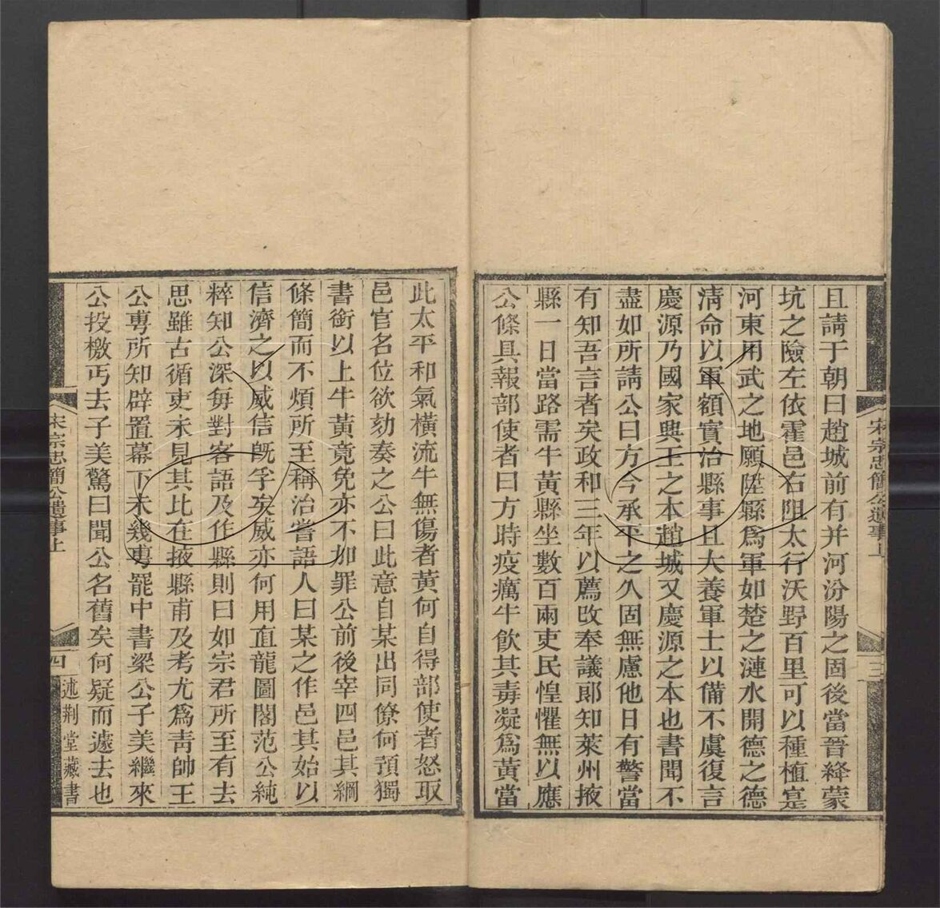 且請于朝曰趙城前有并河汾陽之固後當晉絳蒙
坑之險左依霍邑右阻太行沃野百里可以種植寔
河東用武之地願陞縣爲軍如楚之漣水開德之德
淸命以軍額實治縣事且大養軍士以備不虞復言
慶源乃國家興王之本趙城又慶源之本也書聞不
盡如所請公曰方今承平之久固無慮他日有警當
有知吾言者矣政和三年以薦改奉議郎知萊州掖
縣一日當路需牛黃縣坐數百兩吏民惶懼無以應
公條具報部使者曰方時疫癘牛飲其毒凝爲黃當
宋宗忠簡公遺事上
三
此太平和氣橫流牛無傷者黃何自得部使者怒取
邑官名位欲劾奏之公曰此意自某出同僚何預獨
書銜以上牛黃竟免亦不加罪公前後宰四邑其綱
條簡而不煩所至稱治嘗語人曰某之作邑其始以
信濟之以威信旣孚矣威亦何用直龍圖閣范公純
粹知公深每對客語及作縣則曰如宗君所至有去
思雖古循吏未見其比在掖縣甫及考尤爲靑帥王
公專所知辟置幕下未幾專罷中書梁公子美繼來
公投檄丐去子美驚曰聞公名舊矣何疑而遽去也
宋宗忠簡公遺事上
四
述荆堂藏書